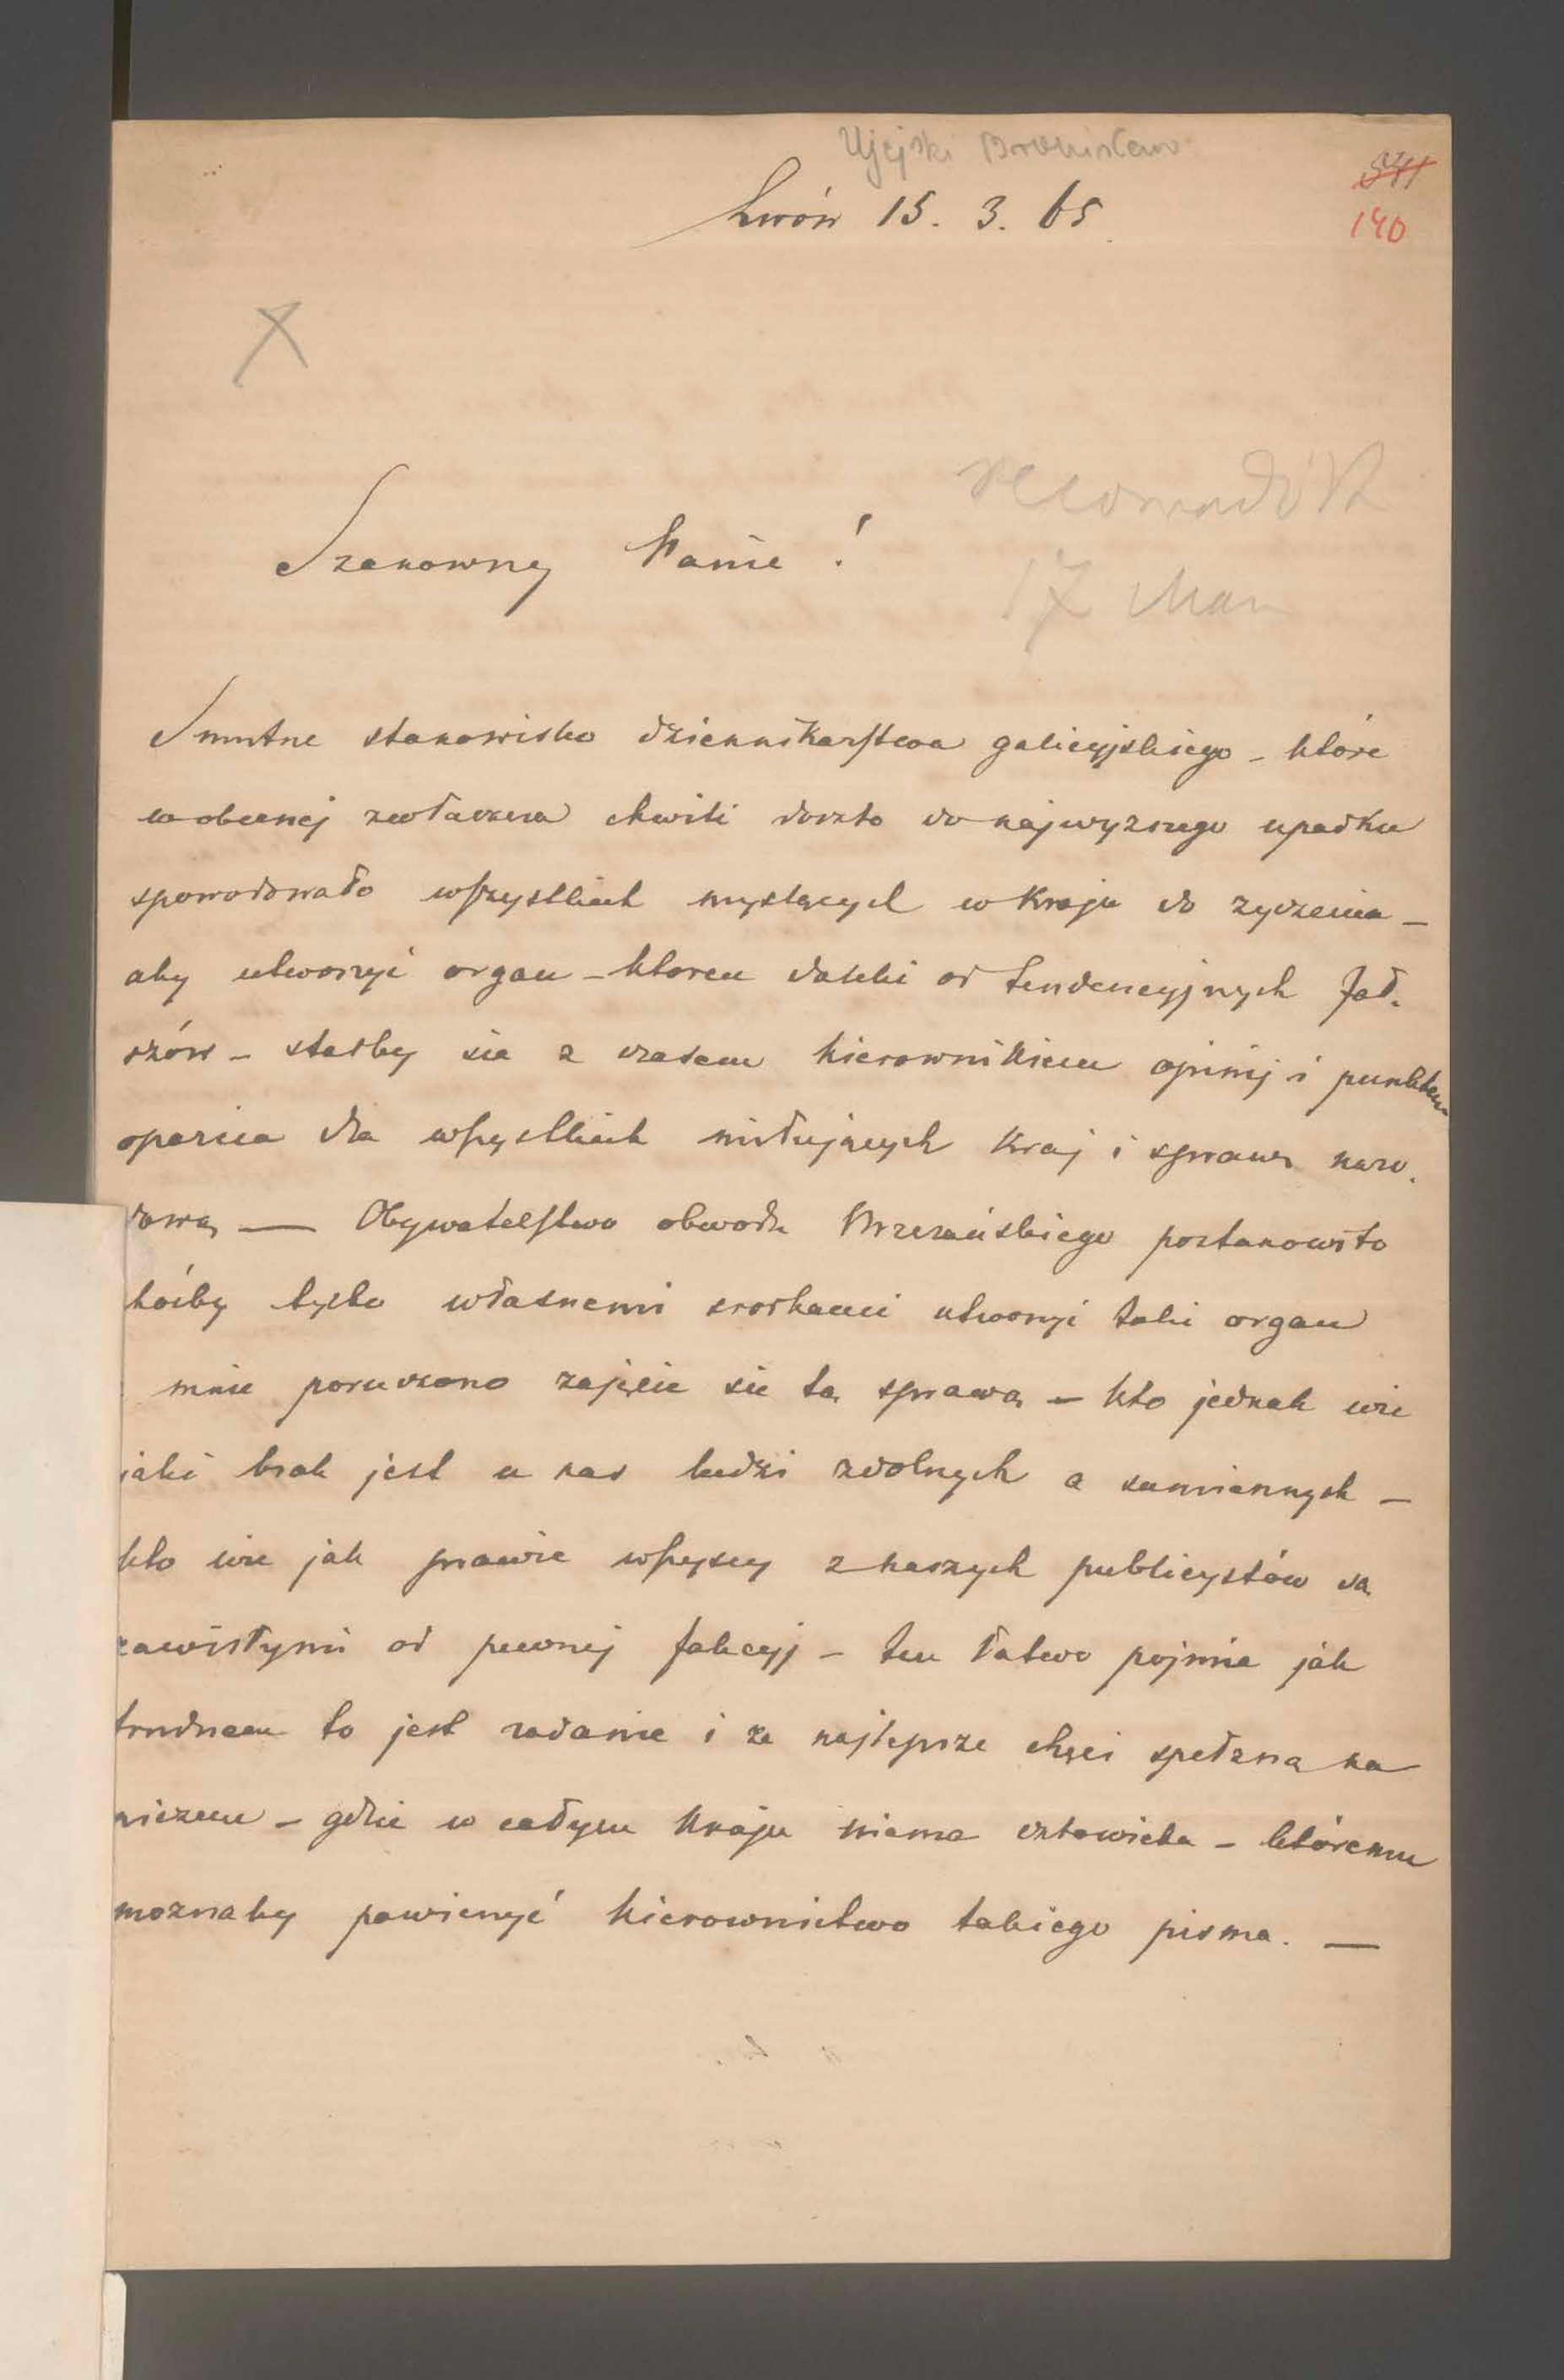 Ujejski Bronisław
541
140
Lwów 15. 3. 65
X
Szanowny Panie!
17 Mar
Smutne stanowisko dziennikarstwa galicyjskiego – które
w obecnej zwłaszcza chwili doszło do najwyzszego upadku
spowodowało wszystkich myslących w Kraju do zyczenia –
aby utworzyć organ – ktoren daleki od tendencyjnych fał-
szów – stałby sie z czasem kierownikiem opinij i punktem
oparcia dla wszystkich miłujących Kraj i sprawę naro-
dową — Obywatelstwo obwodu Brzezańskiego postanowiło
hoćby tylko własnemi srodkami utworzyć taki organ
mnie poruczono zajęcie sie tą sprawą – kto jednak wie
jaki brak jest u nas ludzi zdolnych a sumiennych –
kto wie jak prawie wszyscy z naszych publicystów są
zawisłymi od pewnej fakcyj – ten łatwo pojmie jak
trudnem to jest zadanie i ze najlepsze chęci spełzną na
niczem – gdzie w całym Kraju niema człowieka – któremu
moznaby powierzyć kierownictwo takiego pisma. —